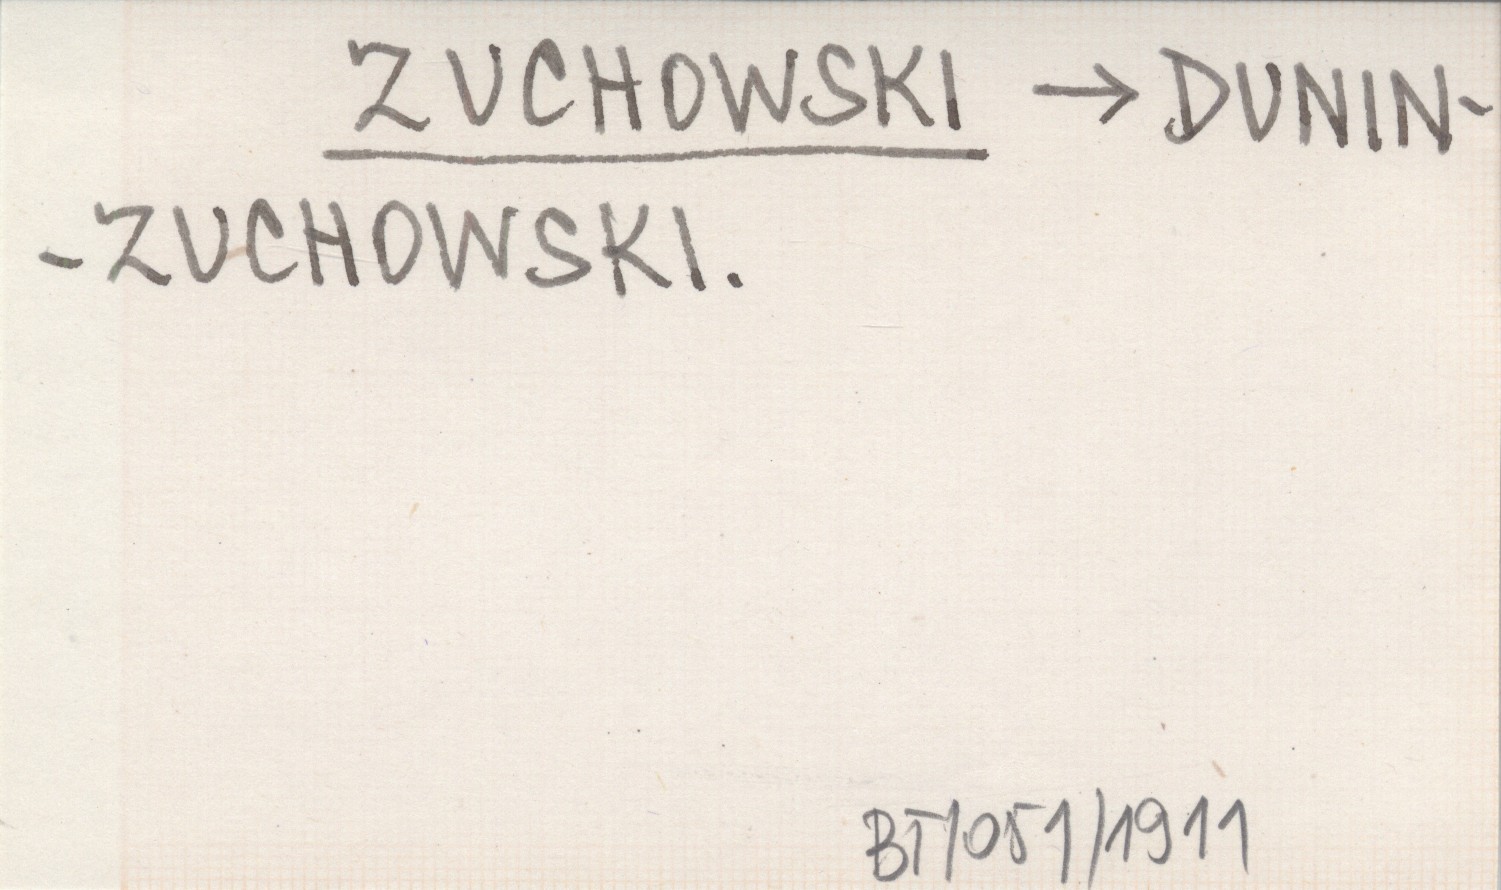 ZUCHOWSKI → DUNIN-
-ZUCHOWSKI.
BT/051/1911